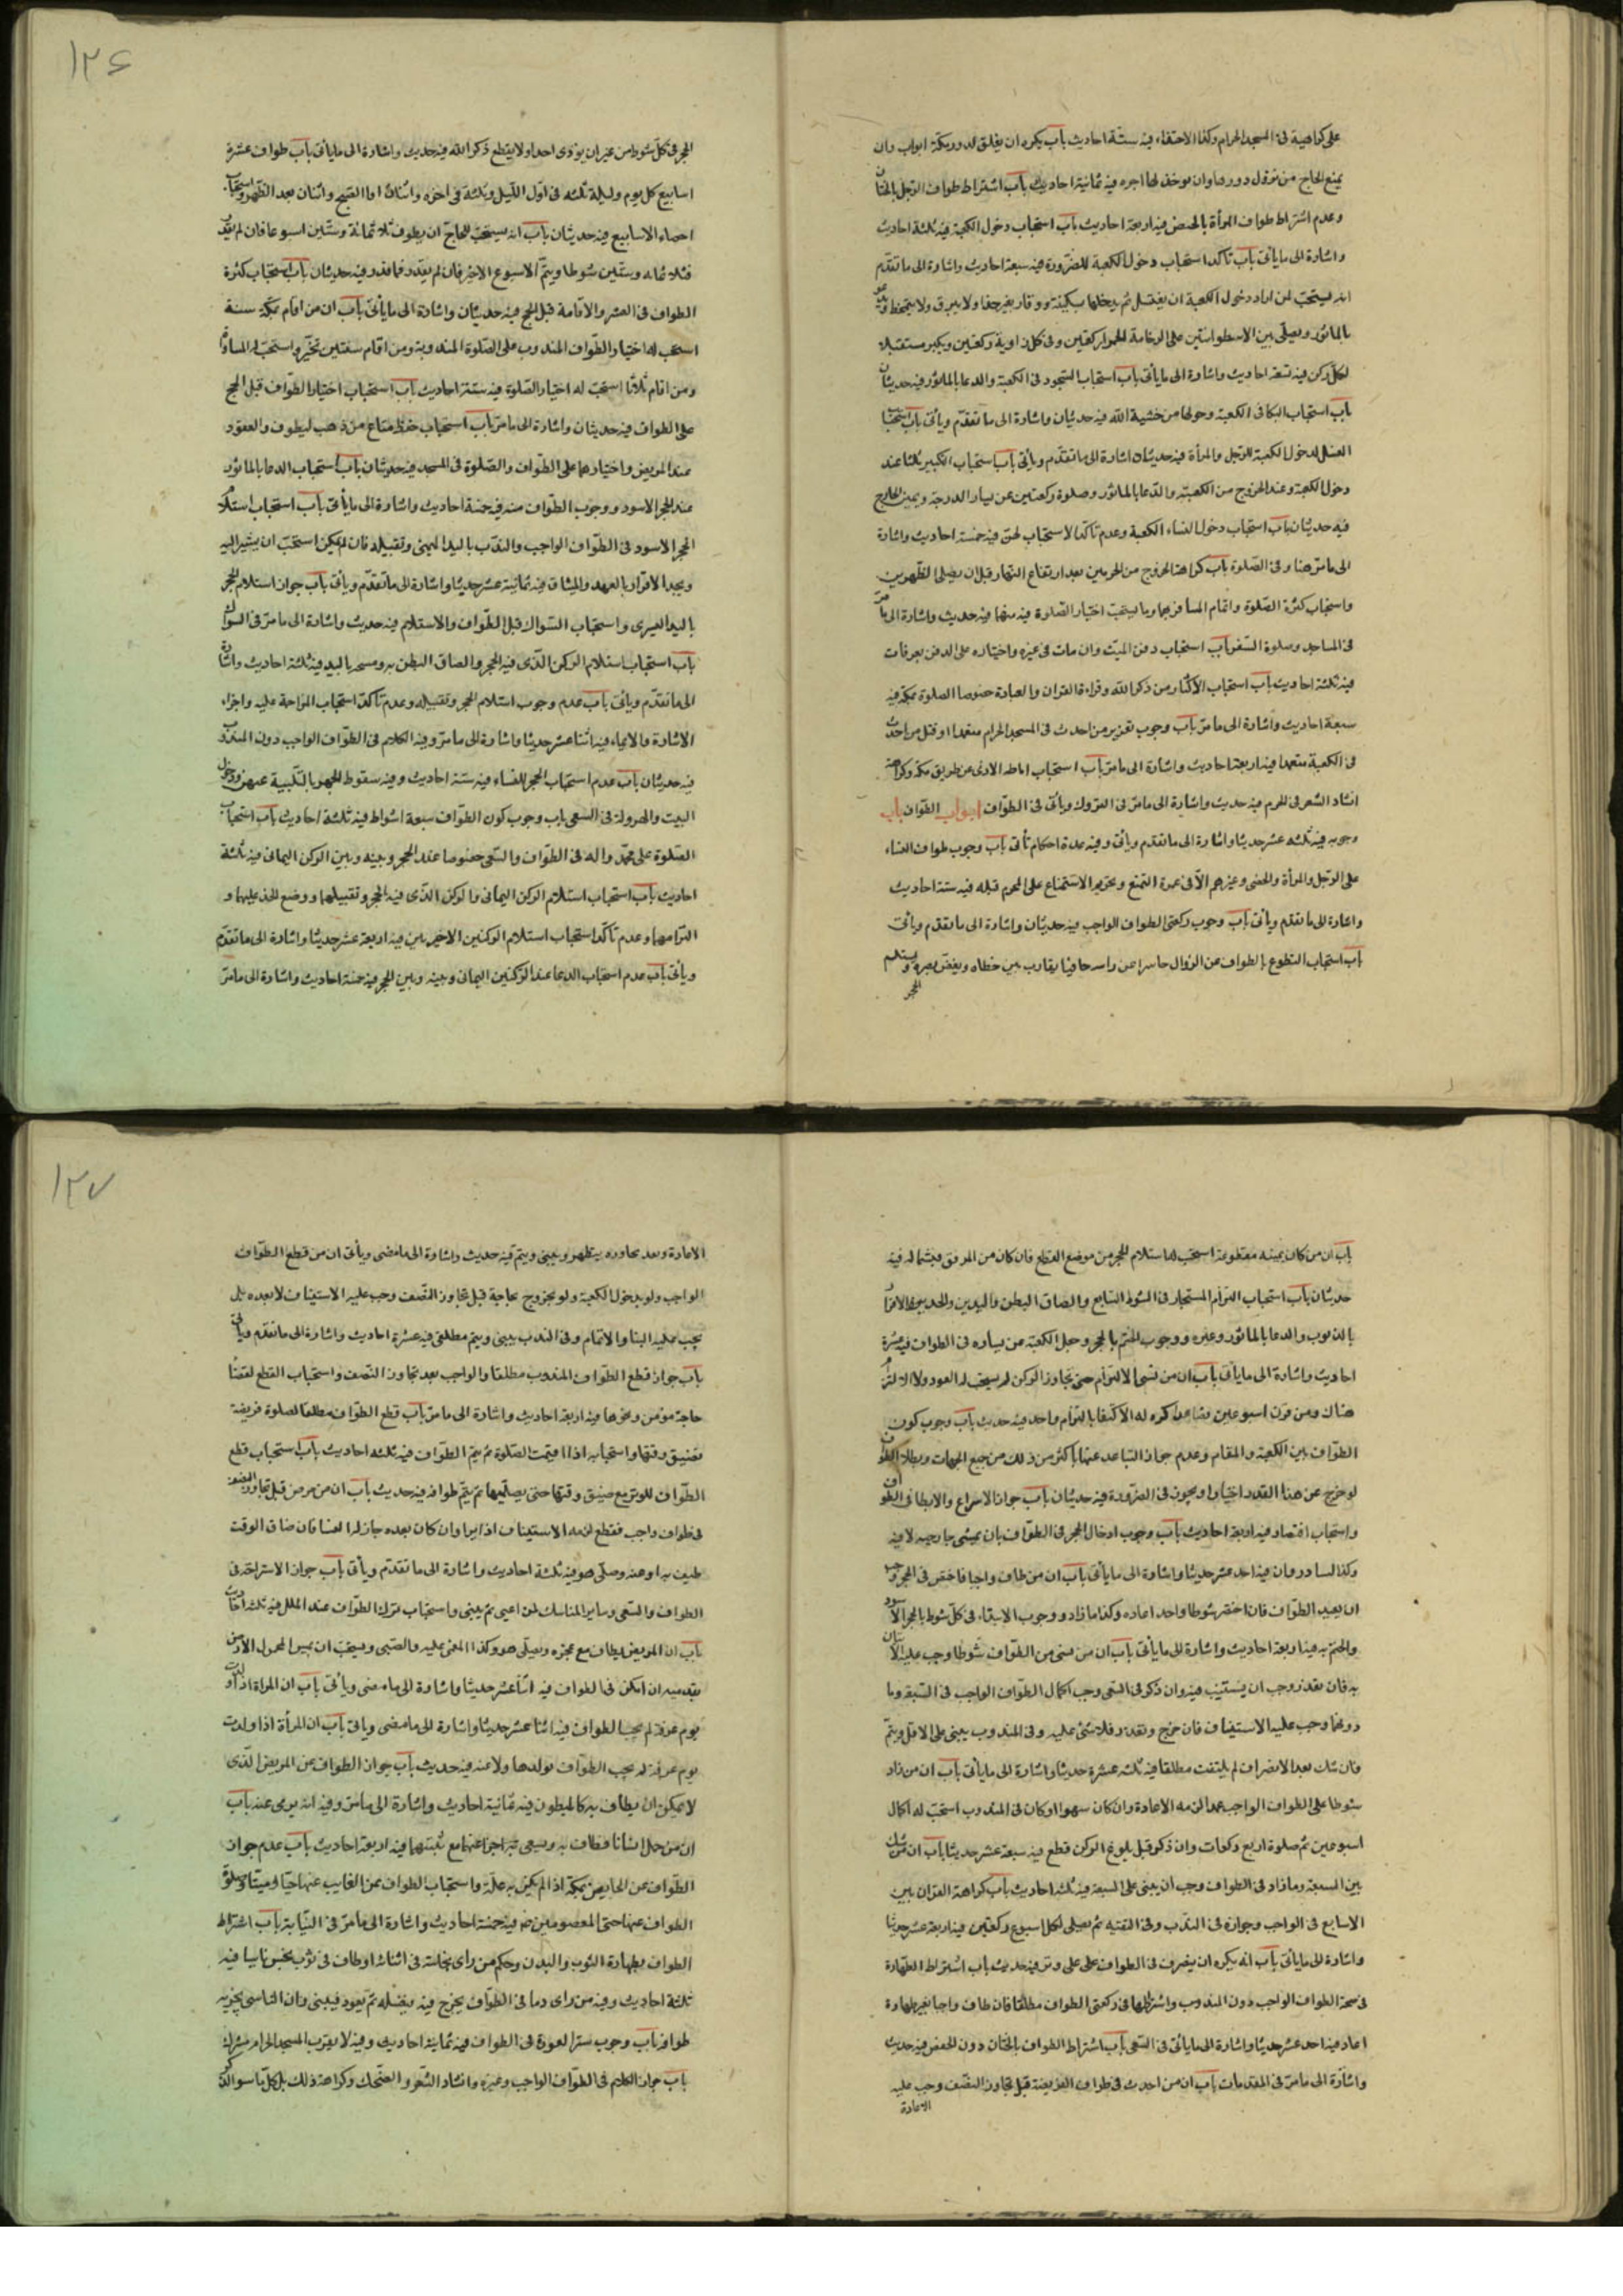 على كراهية فى المسجد الحرام وكذا الاحتفاء فيه ستة احاديث باب يكره ان يغلق لدور مكة ابواب وان
يمنع الحاج من نزول دورها وان يوخذ لها اجره فيه ثمانية احاديث باب اشتراط طواف الرجل بالختان
وعدم اشتراط طواف المرأة بالخفض فيه اربعة احاديث باب استحباب دخول الكعبة فيه ثلثة احاديث
واشارة الى ما يأتى باب تأكد استحباب دخول الكعبة للضرورة فيه سبعة احاديث واشارة الى ما تقدم
انه يستحب لمن اراد دخول الكعبة ان يغتسل ثم يدخلها بسكينة ووقار بغير حذا ولا يبزق ولا يتمخط
بالمأثور ويصلى بين الاسطوانتين على الرخامة الحمرا ركعتين وفى كل زاوية ركعتين ويكبر مستقبلا
لكل ركن فيه تسعة احاديث واشارة الى ما يأتى باب استحباب السجود فى الكعبة والدعا بالمأثور فيه حديثان
باب استحباب البكا فى الكعبة وحولها من خشية الله فيه حديثان واشارة الى ما تقدم ويأتى باب استحباب
الغسل لدخول الكعبة للرجل والمرأة فيه حديثان واشارة الى ما تقدم ويأتى باب استحباب التكبير ثلثا عند
دخول الكعبة وعند الخروج من الكعبة والدعا بالمأثور وصلوة ركعتين عن يسار الدرجة ويمين الخارج
فيه حديثان باب استحباب دخول النساء الكعبة وعدم تأكد الاستحباب لهن فيه خمسة احاديث واشارة
الى ما مر هنا وفى الصلوة باب كراهة الخروج من الحرمين بعد ارتفاع النهار قبل ان يصلى الظهرين
واستحباب كثرة الصلوة واتمام المسافر بهما وما يستحب اختيار الصلوة فيه منهما فيه حديث واشارة الى ما مر
فى المساجد وصلوة السفر باب استحباب دفن الميت وان مات فى غيره واختياره على الدفن بعرفات
فيه ثلثة احاديث باب استحباب الاكثار من ذكر الله وقراءة القران والعبادة خصوصا الصلوة بمكة فيه
سبعة احاديث واشارة الى ما مر باب وجوب تعزير من احدث فى المسجد الحرام متعمدا وقتل من احدث
فى الكعبة متعمدا فيه اربعة احاديث واشارة الى ما مر باب استحباب اماطة الاذى عن طريق مكة وكراهة
انشاد الشعر فى الحرم فيه حديث واشارة الى ما مر فى التروك ويأتى فى الطواف ابواب الطواف باب
وجوبه فيه ثلثة عشر حديثا واشارة الى ما تقدم ويأتى وفيه عدة احكام تأتى باب وجوب طواف النساء
على الرجل والمرأة والخصى وغيرهم الا فى عمرة التمتع وتحريم الاستمتاع على المحرم قبله فيه ستة احاديث
واشارة الى ما تقدم ويأتى باب وجوب ركعتى الطواف الواجب فيه حديثان واشارة الى ما تقدم ويأتى
باب استحباب التطوع بالطواف عن الزوال حاسرا عن راسه حافيا يقارب بين خطاه ويغض بصره ويستلم
الحجر
١٢٦
الحجر فى كل شوط من غير ان يوذى احدا ولا يقطع ذكر الله فيه حديث واشارة الى ما يأتى باب طواف عشرة
اسابيع كل يوم وليلة ثلثة فى اول الليل وثلثة فى اخره واثنان اذا اصبح واثنان بعد الظهر واستحباب
احصاء الاسابيع فيه حديثان باب انه يستحب للحاج ان يطوف ثلاثمائة وستين اسبوعا فان لم يقدر
فثلاثمائة وستين شوطا ويتم الاسبوع الاخير فان لم يقدر فما قدر فيه حديثان باب استحباب كثرة
الطواف فى العشر والاقامة قبل الحج فيه حديثان واشارة الى ما يأتى باب ان من اقام بمكة سنة
استحب له اختيار الطواف المندوب على الصلوة المندوبة ومن اقام سنتين تخير واستحب له المساواة
ومن اقام ثلاثا استحب له اختيار الصلوة فيه ستة احاديث باب استحباب اختيار الطواف قبل الحج
على الطواف فيه حديثان واشارة الى ما مر باب استحباب حفظ متاع من ذهب ليطوف والعقود
عند المريض واختيارهما على الطواف والصلوة فى المسجد فيه حديثان باب استحباب الدعا بالمأثور
عند الحجر الاسود ووجوب الطواف منه فيه خمسة احاديث واشارة الى ما يأتى باب استحباب استلام
الحجر الاسود فى الطواف الواجب والندب باليد اليمنى وتقبيله فان لم يمكن استحب ان يشير اليه
ويجدد الاقرار بالعهد والميثاق فيه ثمانية عشر حديثا واشارة الى ما تقدم ويأتى باب جواز استلام الحجر
باليد اليسرى واستحباب السواك قبل الطواف والاستلام فيه حديث واشارة الى ما مر فى السواك
باب استحباب استلام الركن الذى فيه الحجر والصاق البطن به ومسحه باليد فيه ثلثة احاديث واشارة
الى ما تقدم ويأتى باب عدم وجوب استلام الحجر وتقبيله وعدم تأكد استحباب المزاحمة عليه واجزاء
الاشارة والايماء فيه اثنا عشر حديثا واشارة الى ما مر وفيه الكلام فى الطواف الواجب دون المندوب
فيه حديثان باب عدم استحباب الحجر للنساء فيه ستة احاديث وفيه سقوط الجهر بالتلبية عنهن ودخول
البيت والهرولة فى السعى باب وجوب كون الطواف سبعة اشواط فيه ثلثة احاديث باب استحباب
الصلوة على محمد واله فى الطواف والسعى خصوصا عند الحجر وبينه وبين الركن اليمانى فيه ثلثة
احاديث باب استحباب استلام الركن اليمانى والركن الذى فيه الحجر وتقبيلهما ووضع الخد عليهما و
التزامهما وعدم تأكد استحباب استلام الركنين الاخيرين فيه اربعة عشر حديثا واشارة الى ما تقدم
ويأتى باب عدم استحباب الدعا عند الركنين اليمانى وبينه وبين الحجر فيه خمسة احاديث واشارة الى ما مر
باب ان من كان يمينه مقطوعة استحب له استلام الحجر من موضع القطع فان كان من المرفق فبشماله فيه
حديثان باب استحباب التزام المستجار فى الشوط السابع والصاق البطن واليدين والخد به والاقرار
بالذنوب والدعا بالمأثور وغيره ووجوب الختم بالحجر وجعل الكعبة عن يساره فى الطواف فيه عشرة
احاديث واشارة الى ما يأتى باب ان من نسى الالتزام حتى تجاوز الركن لم يستحب له العود ولا الالتزام
هناك ومن قرن اسبوعين فصاعدا كره له الاكتفا بالتزام واحد فيه حديث باب وجوب كون
الطواف بين الكعبة والمقام وعدم جواز التباعد عنها باكثر من ذلك من جميع الجهات وبطلان الطواف
لو خرج عن هذا القدر اختيارا ويجوز فى الضرورة فيه حديثان باب جواز الاسراع والابطا فى الطواف
واستحباب اقتصاد فيه اربعة احاديث باب وجوب ادخال الحجر فى الطواف بان يمشى خارجه لا فيه
وكذا الشادروان فيه احد عشر حديثا واشارة الى ما يأتى باب ان من طاف واجبا فاختصر فى الحجر وجب
ان يعيد الطواف فان اختصر شوطا واحدا اعاده وكذا ما زاد ووجوب الابتداء فى كل شوط بالحجر الاسود
والختم به فيه اربعة احاديث واشارة الى ما يأتى باب ان من نسى من الطواف شوطا وجب عليه الاتيان
به فان تعذر وجب ان يستنيب فيه وان ذكر فى السعى وجب اكمال الطواف الواجب فى السبعة وما
دونها وجب عليه الاستيناف فان خرج وتعذر فلا شئ عليه وفى المندوب يبنى على الاقل ويتم
فان شك بعد الانصراف لم يلتفت مطلقا فيه ثلثة عشر حديثا واشارة الى ما يأتى باب ان من زاد
شوطا على الطواف الواجب عمدا لزمه الاعادة وان كان سهوا او كان فى المندوب استحب له اكمال
اسبوعين ثم صلوة اربع ركعات وان ذكر قبل بلوغ الركن قطع فيه سبعة عشر حديثا باب ان من شك
بين السبعة وما زاد فى الطواف وجب ان يبنى على السبعة فيه ثلثة احاديث باب كراهة القران بين
الاسابيع فى الواجب وجوازه فى الندب وفى التقية ثم يصلى لكل اسبوع ركعتين فيه اربعة عشر حديثا
واشارة الى ما يأتى باب انه يكره ان ينصرف فى الطواف على على وتر فيه حديث باب اشتراط الطهارة
فى صحة الطواف الواجب دون المندوب واشتراطها فى ركعتى الطواف مطلقا فان طاف واجبا بغير طهارة
اعاد فيه احد عشر حديثا واشارة الى ما يأتى فى السعى باب اشتراط الطواف بالختان دون الخفض فيه حديث
واشارة الى ما مر فى المقدمات باب ان من احدث فى طواف الفريضة قبل تجاوز النصف وجب عليه
الاعادة
١٢٧
الاعادة وبعد تجاوزه يتطهر ويبنى ويتم فيه حديث واشارة الى ما مضى ويأتى ان من قطع الطواف
الواجب ولو بدخول الكعبة ولو بخروج بحاجة قبل تجاوز النصف وجب عليه الاستيناف لا بعده بل
يجب عليه البنا والاتمام وفى الندب يبنى ويتم مطلقا فيه عشرة احاديث واشارة الى ما تقدم ويأتى
باب جواز قطع الطواف المندوب مطلقا والواجب بعد تجاوز النصف واستحباب القطع لقضاء
حاجة مؤمن ونحوها فيه اربعة احاديث واشارة الى ما مر باب قطع الطواف مطلقا لصلوة فريضة
تضيق وقتها واستحبابه اذا اقيمت الصلوة ثم يتم الطواف فيه ثلثة احاديث باب استحباب قطع
الطواف للوتر مع ضيق وقتها حتى يصليها ثم يتم طوافه فيه حديث باب ان من مرض قبل تجاوز النصف
فى طواف واجب فقطع لزمه الاستيناف اذا برا وان كان بعده جاز له البنا فان ضاق الوقت
طيف به او عنه وصلى هو فيه ثلثة احاديث واشارة الى ما تقدم ويأتى باب جواز الاستراحة فى
الطواف والسعى وساير المناسك لمن اعيى ثم يبنى واستحباب ترك الطواف عند الملل فيه ثلثة احاديث
باب ان المريض يطاف مع عجزه ويصلى هو وكذا المغمى عليه والصبى ويستحب ان يمس المحمول الارض
بقدميه ان امكن فى الطواف فيه اثنا عشر حديثا واشارة الى ما مضى ويأتى باب ان المراة اذا ولدت
يوم عرفة لم يجب الطواف فيه اثنا عشر حديثا واشارة الى ما مضى ويأتى باب ان المرأة اذا ولدت
يوم عرفة لم يجب الطواف بولدها ولا عنه فيه حديث باب جواز الطواف عن المريض الذى
لا يمكن ان يطاف به كالمبطون فيه ثمانية احاديث واشارة الى ما مر وفيه انه يرمى عنه باب
ان من حمل انسانا فطاف به وسعى به اجزا عنهما مع نيتهما فيه اربعة احاديث باب عدم جواز
الطواف عن الحاضر بمكة اذا لم يكن به علة واستحباب الطواف عن الغايب عنها حيا وميتا وصلوة
الطواف عنهما حتى المعصومين فيه خمسة احاديث واشارة الى ما مر فى النيابة باب اشتراط
الطواف بطهارة الثوب والبدن وحكم من راى نجاسة فى اثنائه او طاف فى ثوب نجس ناسيا فيه
ثلثة احاديث وفيه من راى دما فى الطواف يخرج فيه ويغسله ثم يعود فيبنى وان الناسى يجزيه
طوافه باب وجوب ستر العورة فى الطواف فيه ثمانية احاديث وفيه لا يقرب المسجد الحرام مشرك
باب جواز الكلام فى الطواف الواجب وغيره وانشاد الشعر والضحك وكراهة ذلك بل كل ما سوا الذكر